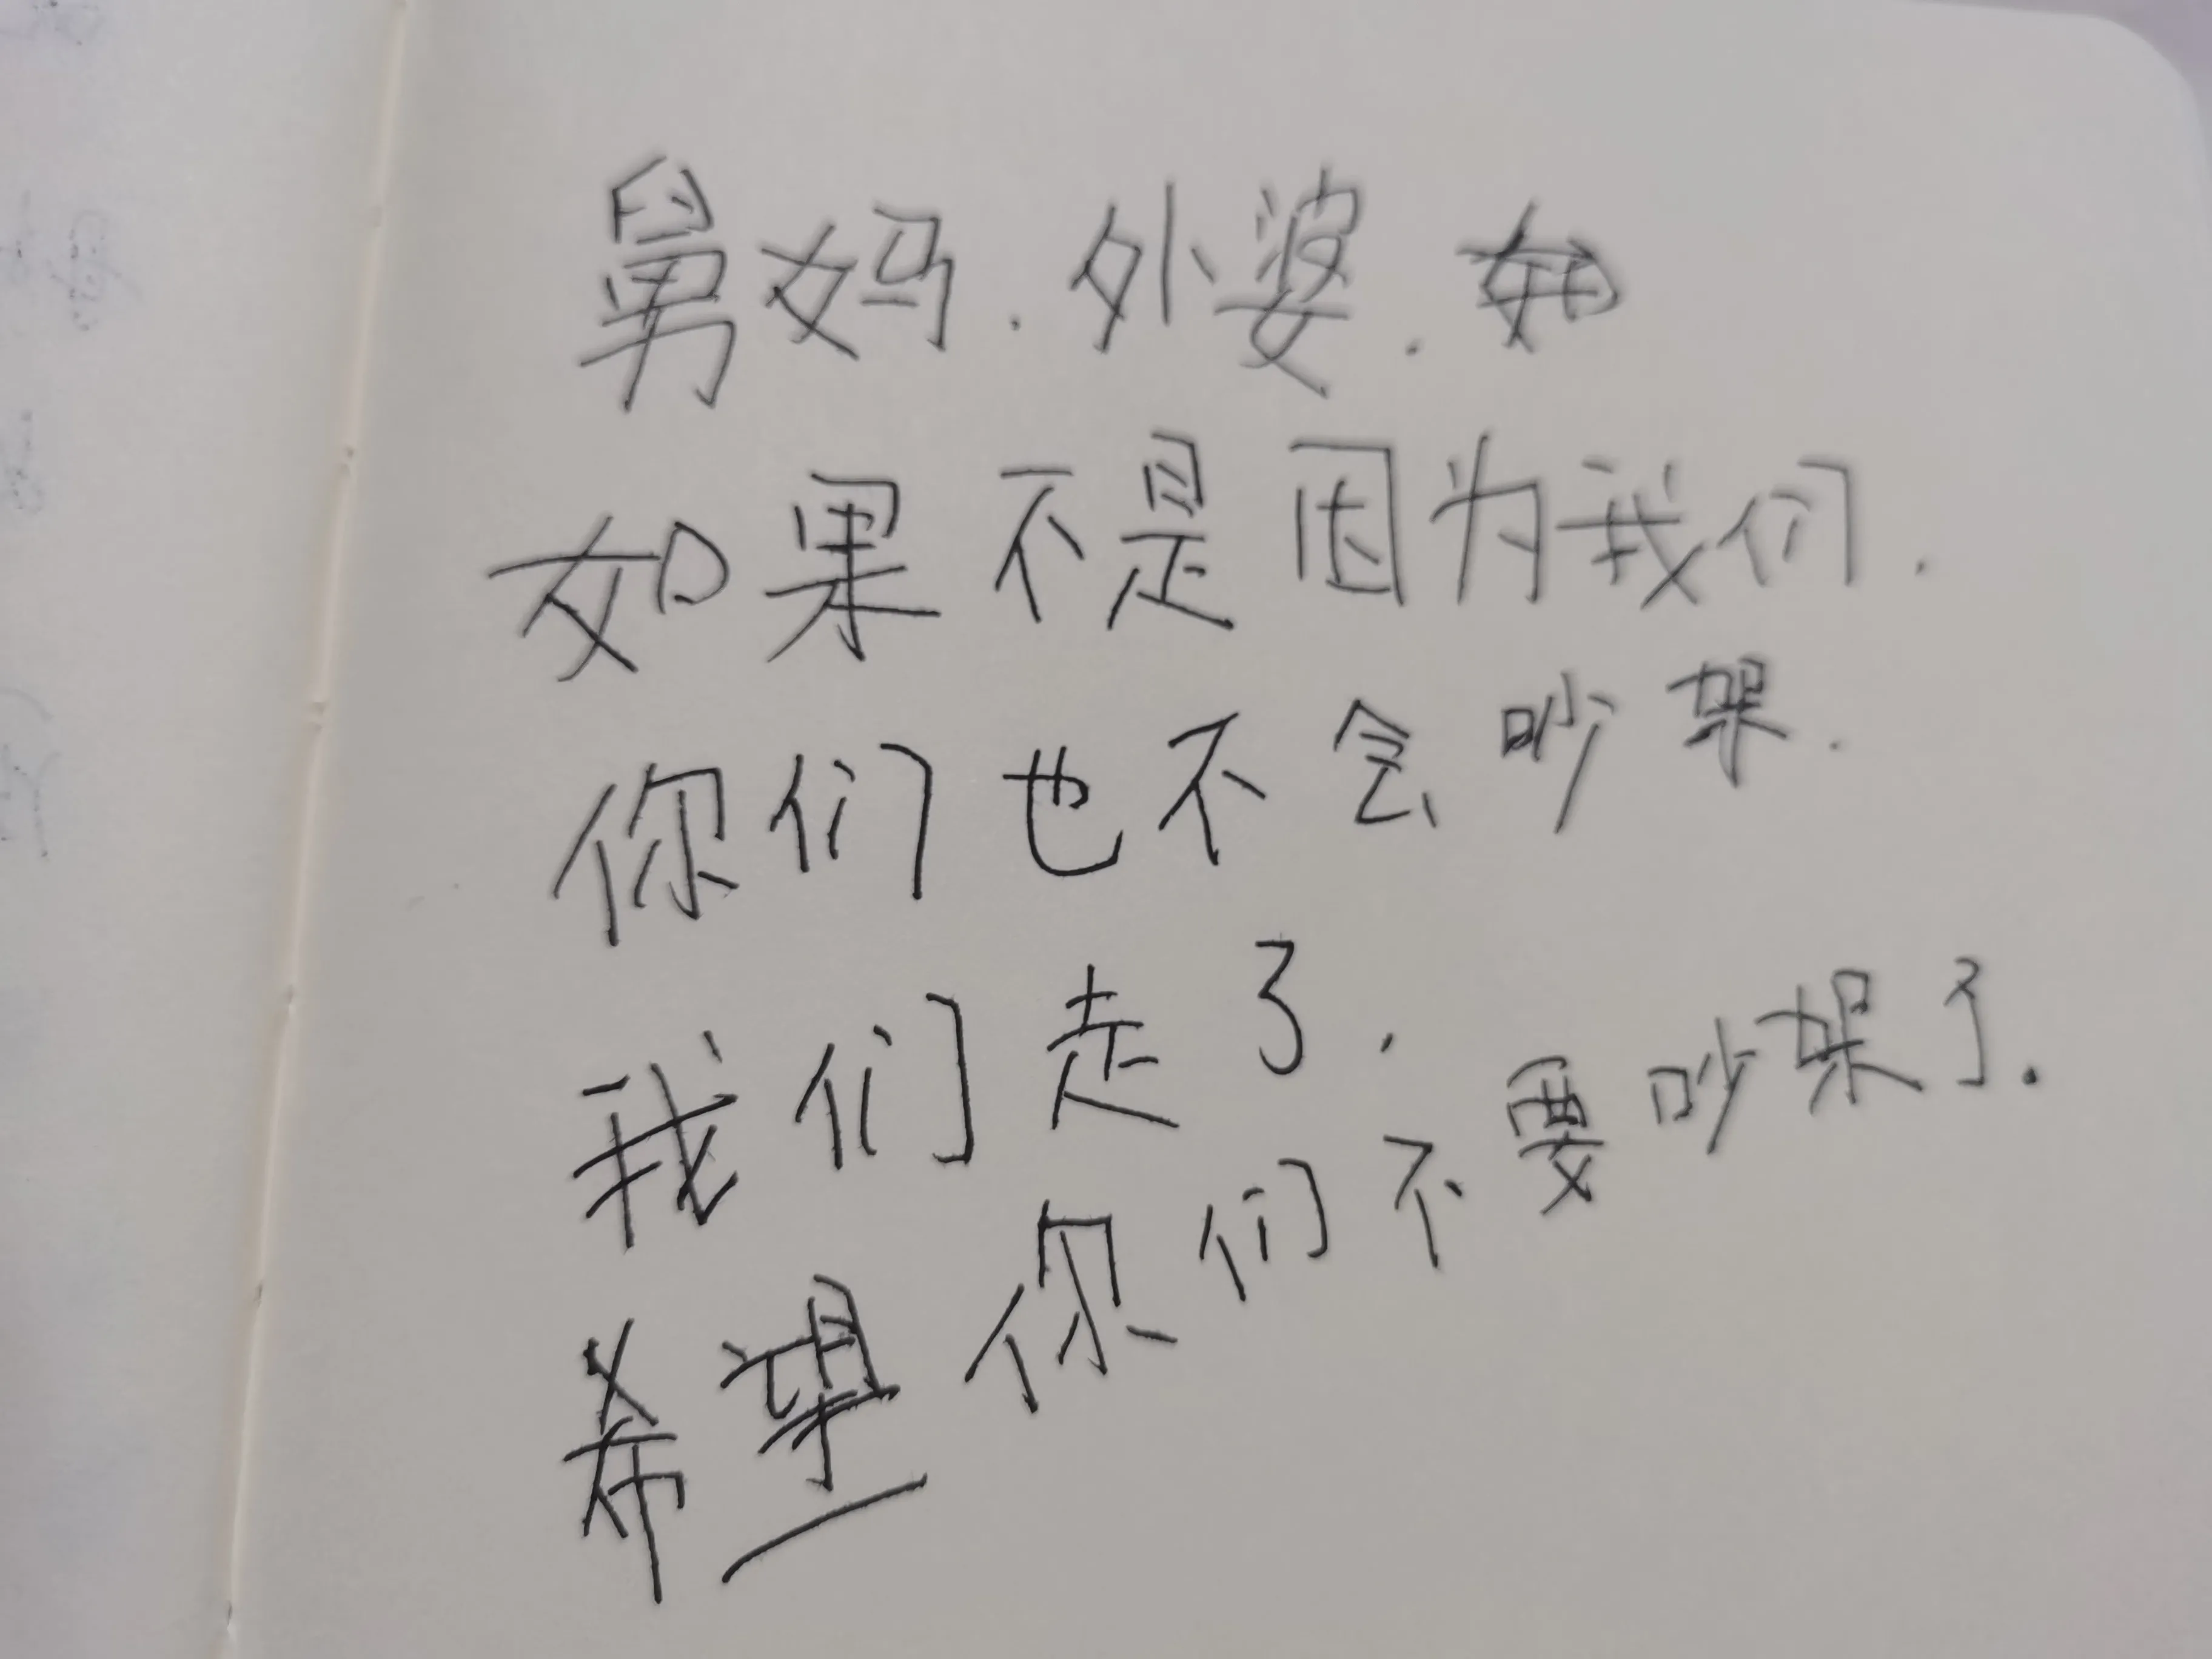 舅妈.外婆.
如果不是因为我们.
你们也不会吵架.
我们走了.
希望你们不要吵架了.